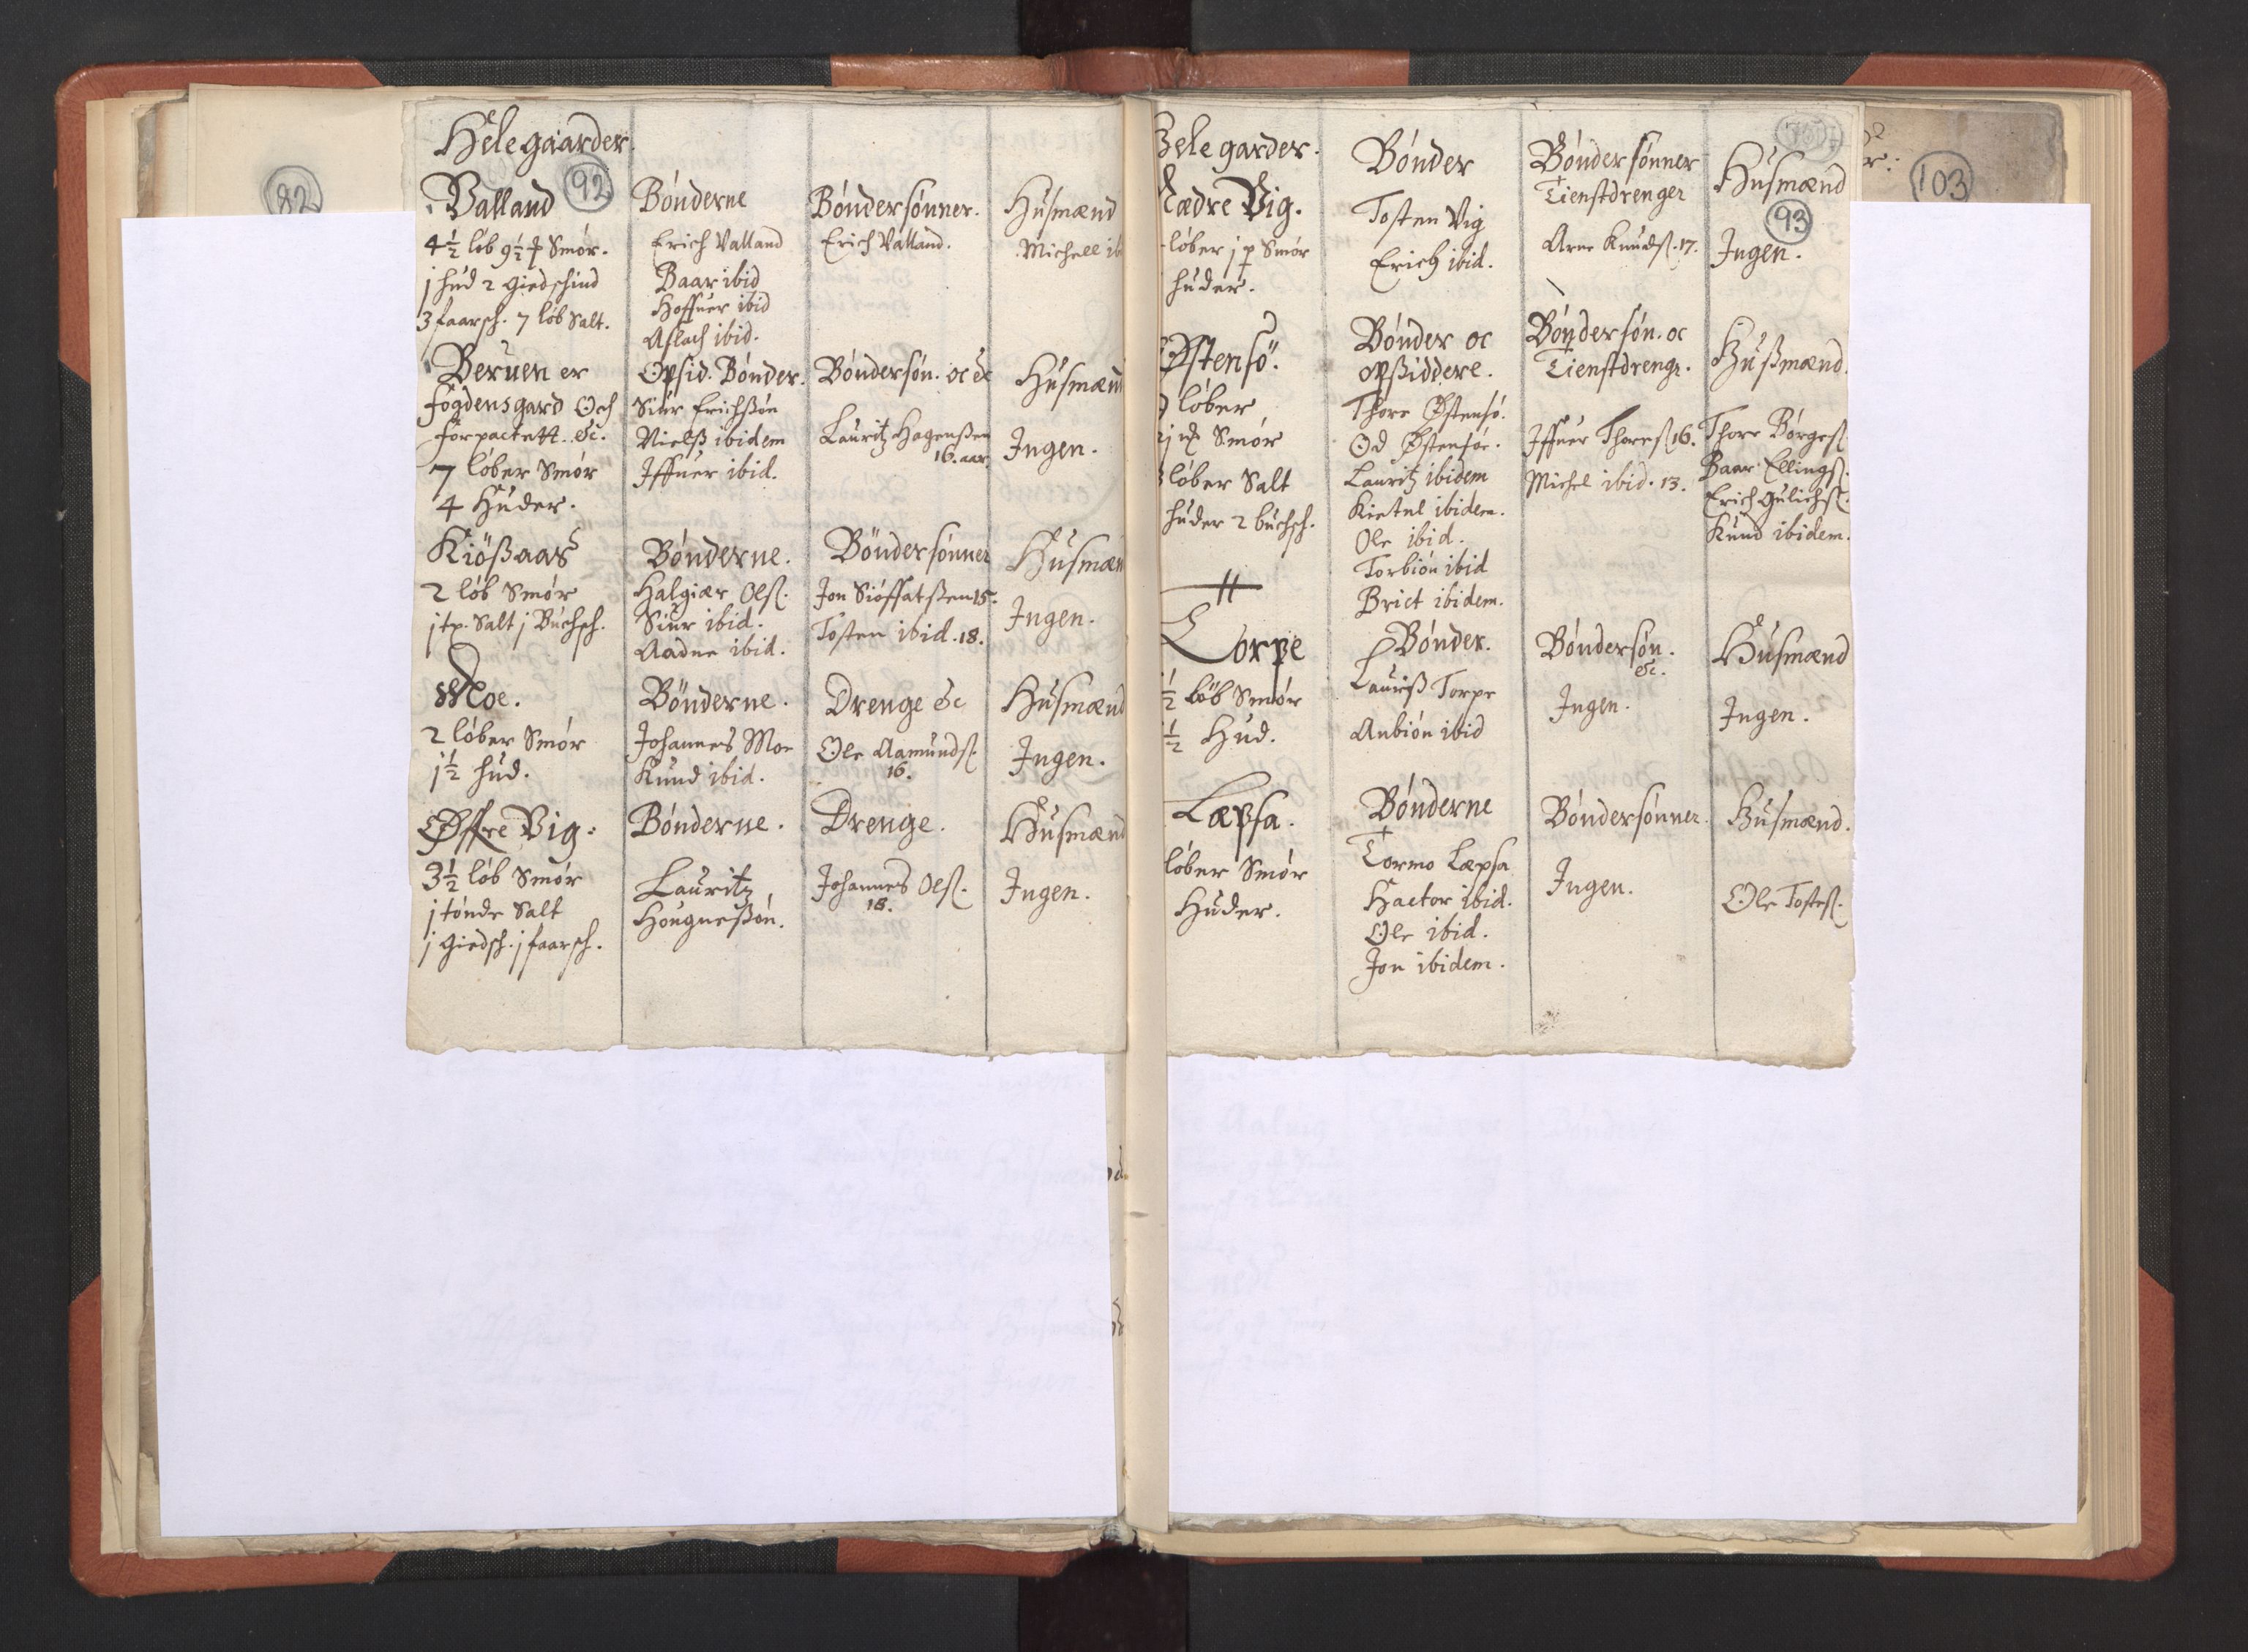 82
Hele gaarder.
Valland 92
4½ løb 9½ Smør.
j hud 2 giedschind
3 faarsch. 7 løb Salt.
Bønderne
Erich Valland
Baar ibid
Hoffuer ibid
Aslach ibid.
Bøndersønner.
Erich Valland.
Husmænd
Michell
Beruen er
fogdens gard Och
forpactett. &c.
7 løber Smør
4 Huder.
Opsid. Bønder.
Siur Erichssøn
Nielss ibidem
Iffuer ibid.
Bøndersøn. oc &c
Lauritz Hagenssen
16. aar.
Husmænd
Ingen.
Kiössaas
2 løb Smør
j tp. Salt j Buchsch.
Bønderne.
Halgiær Ols.
Siur ibid.
Aadne ibid.
Bøndersønner
Jon Siöffatssen 15.
Tosten ibid. 18.
Husmæn
Ingen.
Moe.
2 løber Smør
j½ hud.
Bønderne.
Johannes Moe
Knud ibid.
Drenge &c
Ole Aamunds.
16.
Husmænd
Ingen.
Øffre Vig.
3½ løb Smør
j tønde Salt
j giedsch. j faarsch.
Bønderne.
Lauritz
Hougnessøn.
Drenge.
Johannes Ols.
18.
Husmænd
Ingen.
Hele garder.
Nædre Vig.
løber j p Smør
huder.
Bønder
Tosten Vig
Erich ibid.
Bøndersønner
Tienstdrenger
Arne Knuds. 17.
Husmænd
93
Ingen.
103
Østensö.
løber
Smør
løber Salt
huder 2 buchsch.
Bønder oc
opsiddere.
Thore Østensö.
Od Østensöe.
Lauritz ibidem
Kietel ibidem.
Ole ibid.
Torbiön ibid
Brict ibidem.
Bøndersøn. oc
Tienstdreng.
Iffuer Thores. 16.
Michel ibid. 13.
Hussmænd.
Thore Börges.
Baar Ellings.
Erich Gulichs.
Knud ibidem.
Torpe
½ løb Smør
½ Hud.
Bønder.
Laurss Torpe
Anbiön ibid
Bøndersøn.
&c.
Ingen.
Husmænd
Ingen.
Læpsa.
løber Smør
Huder.
Bønderne
Tormo Læpsa
Hactor ibid.
Ole ibid.
Jon ibidem.
Bøndersønner.
Ingen.
Husmænd.
Ole Tostes.